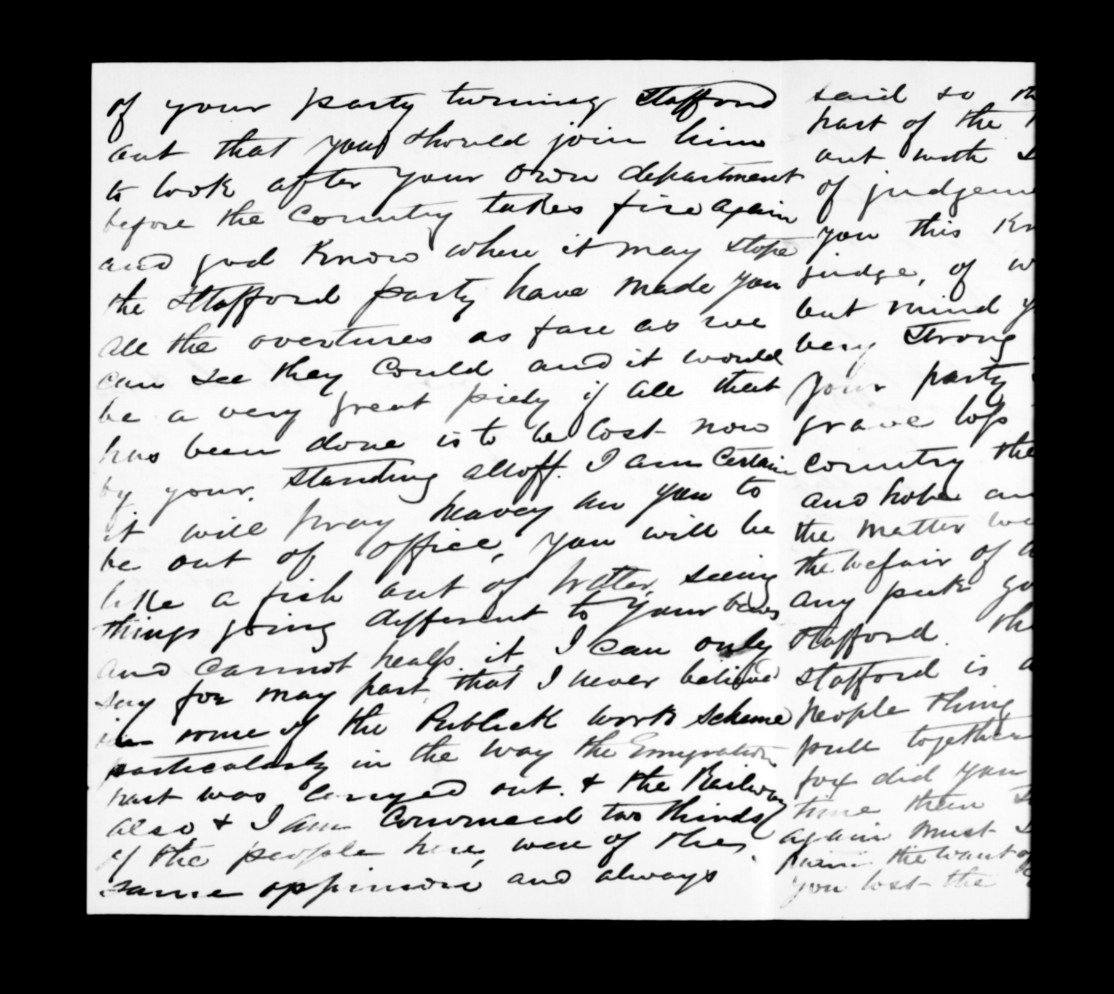 of your party turning Stafford
out that you should join him
to look after your own department
before the Country takes fire again
and god Know where it may stope
the Stafford party have made you
all the overtures as fare as we
can see they Could and it would
be a very great piety if all that
has been done is to be lost now
by your standing alloff. I am Certain
it will pray heavey on you to
be out of office, you will be
like a fish out of Watter, seeing
things going different to your
and cannot healp it, I can only
say for may part, that I never believed
in some of the Publick works Scheme
particularly in the way the Emigration
part was out. & the Railway
also & I am two thirds
of the people here, were of the
same oppinion and always
said so
part of the
out with
of
you this
judge, of
but mind
very Strong
your party
grave loss
Country the
and hope
the matter
the welfair of
any
Stafford.
Stafford is
people thing
pull together
fox did you
time them
again must
the want of
you lost the